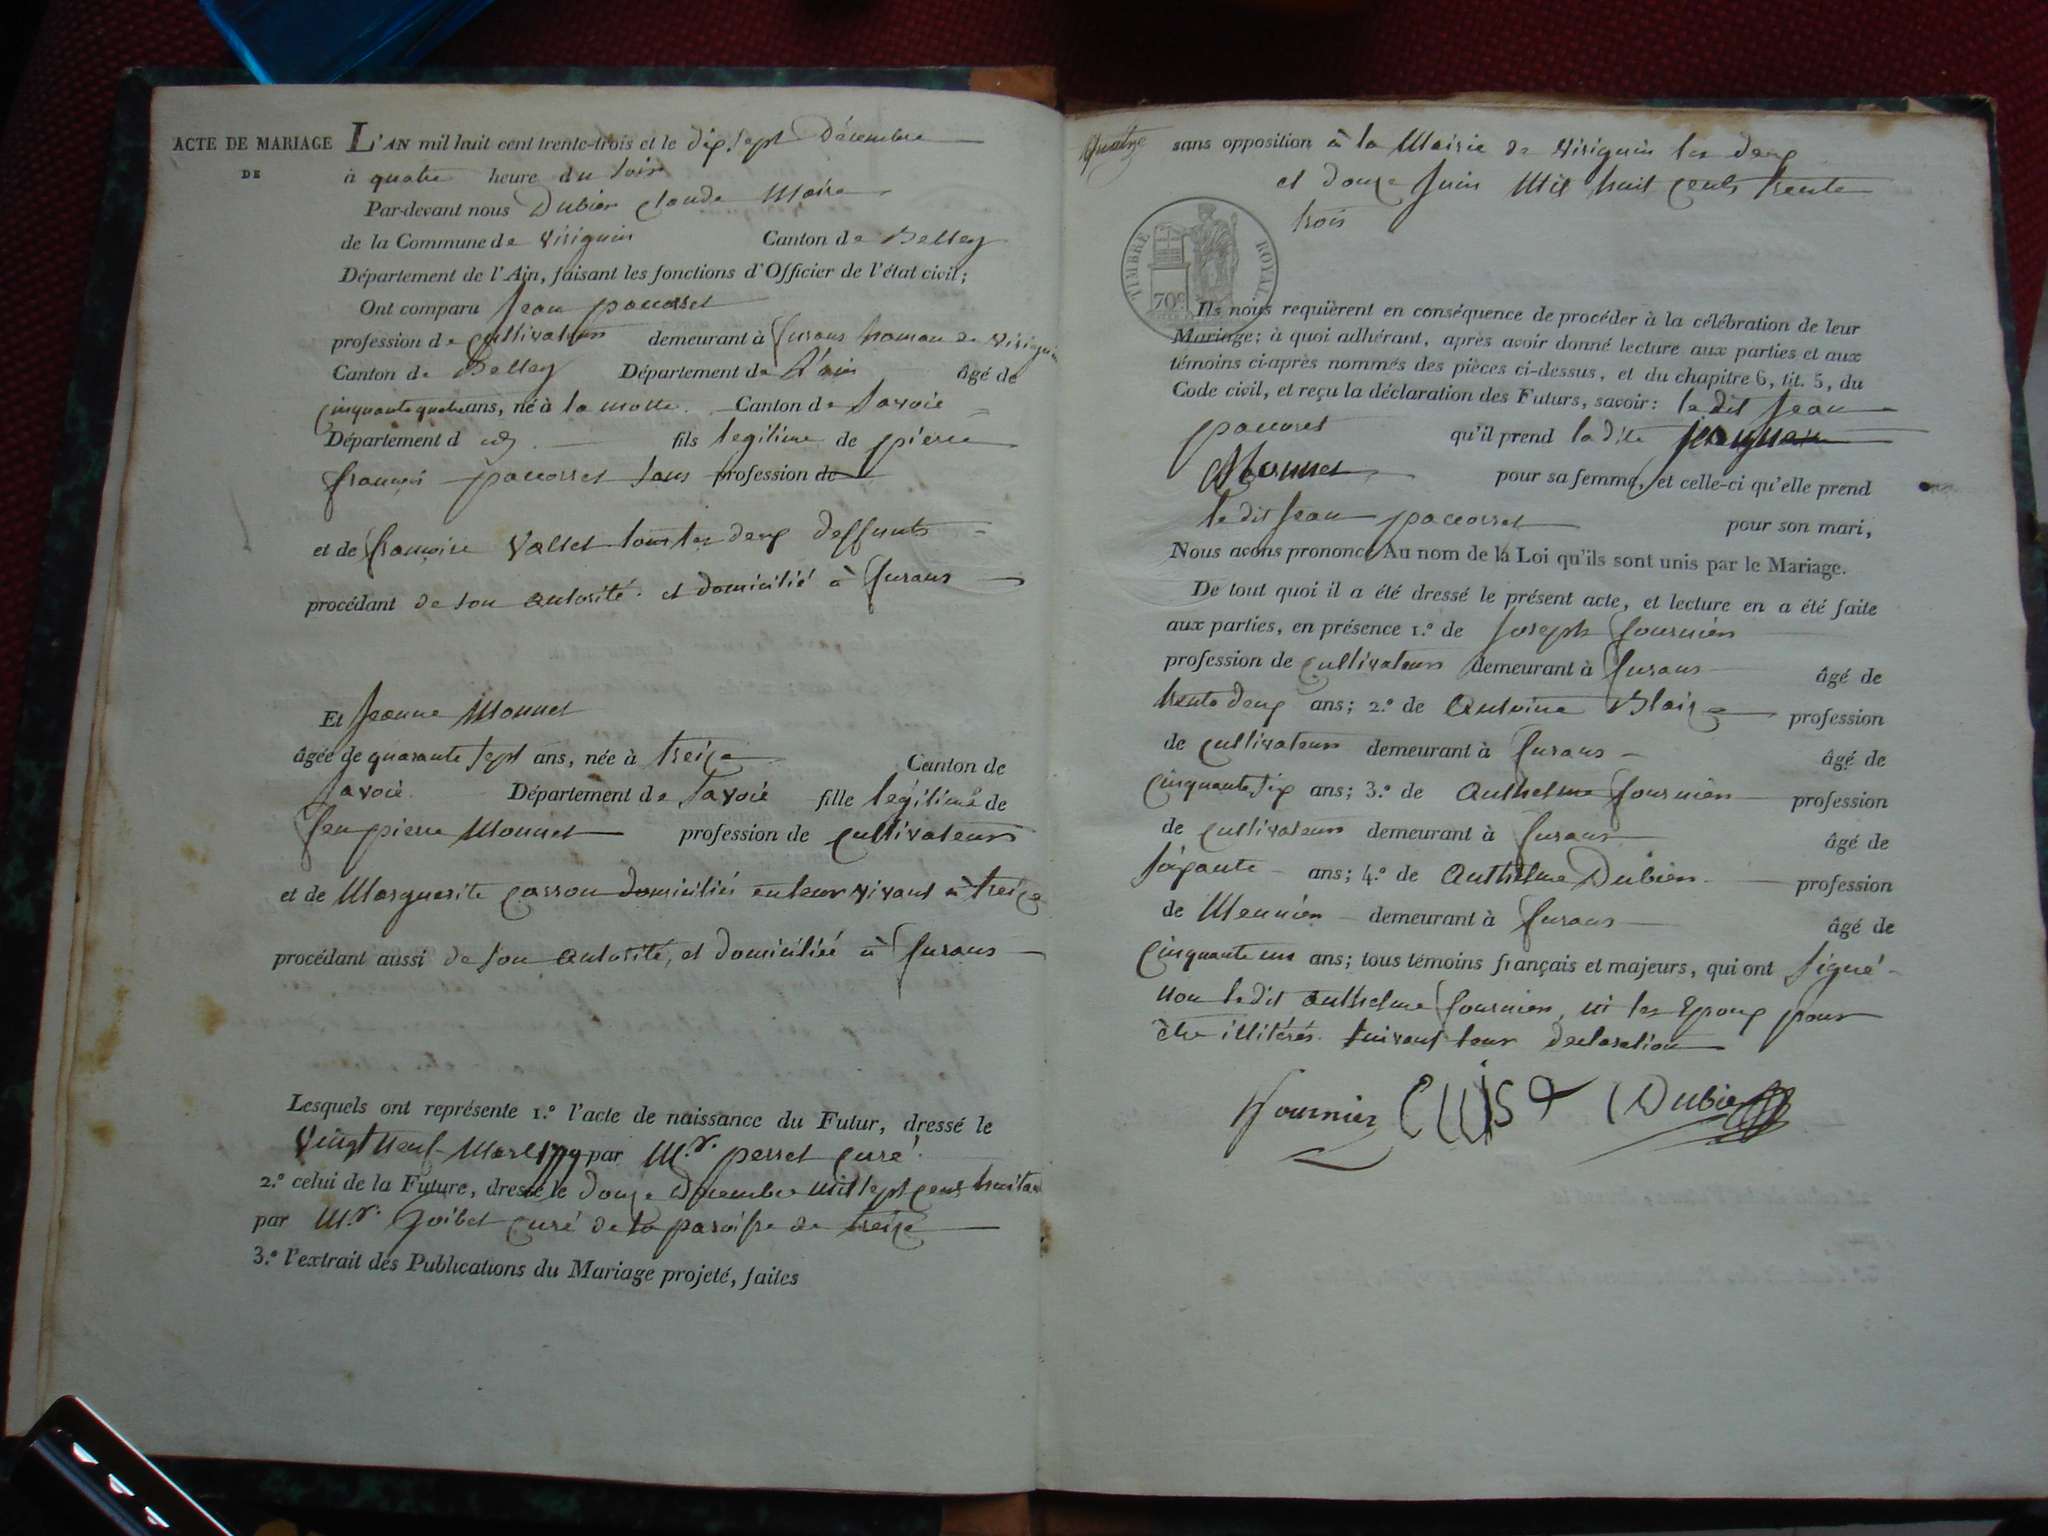 ACTE DE MARIAGE
DE
L'AN mil huit cent trente-trois et le dix sept Décembre
à quatre heure du soir
Par-devant nous Dubier claude Maire
de la Commune de Virignin Canton de Belley
Département de l'Ain, faisant les fonctions d'Officier de l'état civil;
Ont comparu Jean pacorret
profession de cultivateur demeurant à furans hamau de Virignin
Canton de Belley Département de L'ain âgé de
cinquante quatre ans, né à la motte Canton de Savoie
Département d fils legitime de pierre
françois pacorret sans profession de
et de françoise Vallet tous les deux deffunts
procédant de son autorité et domicilié à furans
Et Jeanne Monnet
âgée de quarante sept ans, née à treize Canton de
Savoie Département de Savoie fille légitime de
feu pierre Monnet profession de cultivateur
et de Marguerite Carron domiciliés en leur vivant à treize
procédant aussi de son autorité, et domiciliée à furans
Lesquels ont représente 1.º l'acte de naissance du Futur, dressé le
Vingt neuf Mars 1779 par Mr. perret curé
2.º celui de la Future, dressé le douze Décembre mil sept cent huitan
par Mr. Goibet curé de la paroisse de treize
3.º l'extrait des Publications du Mariage projeté, faites
Quatre
sans opposition à la Mairie de Virignin les deux
et douze Juin Mil huit cents trente
trois
TIMBRE ROYAL
70c
Ils nous requièrent en conséquence de procéder à la célébration de leur
Mariage; à quoi adhérant, après avoir donné lecture aux parties et aux
témoins ci-après nommés des pièces ci-dessus, et du chapitre 6, tit. 5, du
Code civil, et reçu la déclaration des Futurs, savoir: le dit Jean
pacorret qu'il prend la dite
Monnet pour sa femme, et celle-ci qu'elle prend
le dit Jean pacorret pour son mari,
Nous avons prononcé Au nom de la Loi qu'ils sont unis par le Mariage.
De tout quoi il a été dressé le présent acte, et lecture en a été faite
aux parties, en présence 1.º de Joseph fournier
profession de cultivateur demeurant à furans âgé de
trente deux ans; 2.º de Antoine Blaize profession
de cultivateur demeurant à furans âgé de
cinquante six ans; 3.º de Anthelme fournier profession
de cultivateur demeurant à furans âgé de
soixante ans; 4.º de Anthelme Dubier profession
de Meunier demeurant à furans âgé de
cinquante un ans; tous témoins français et majeurs, qui ont signé
non le dit anthelme fournier, ni les Epoux pour
être illitérés suivant leur declaration
fournier Dubier